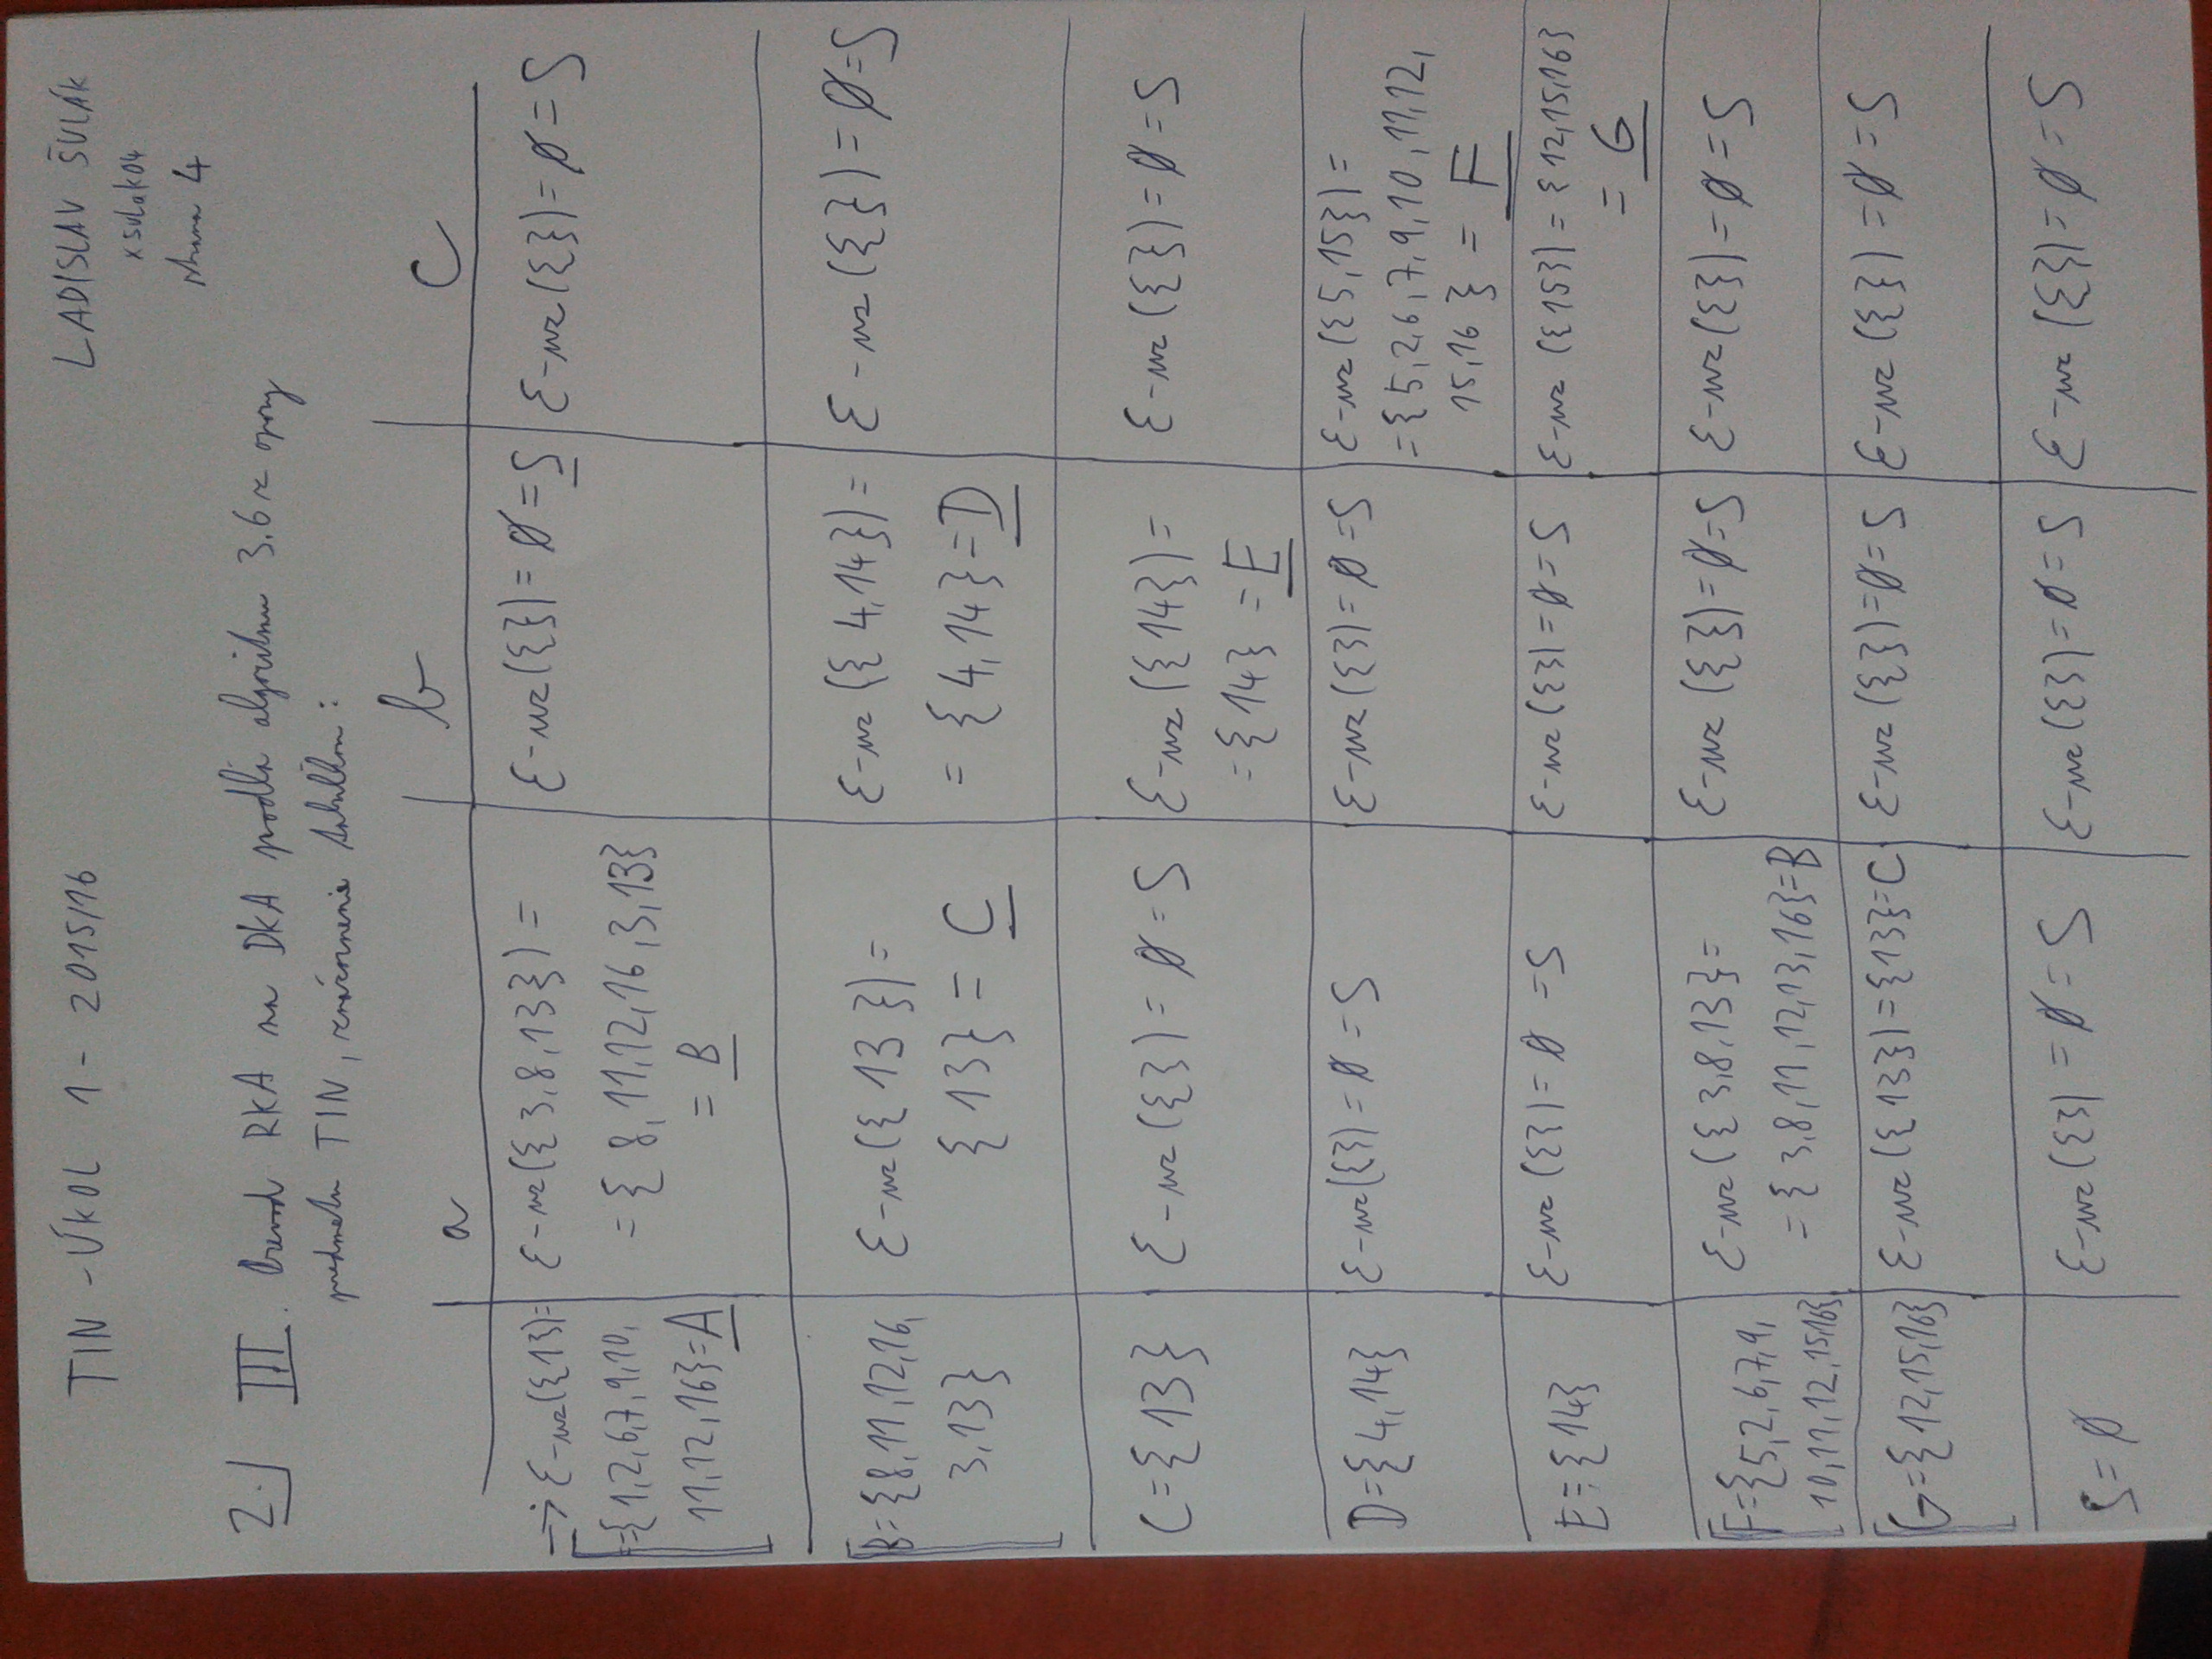 TIN - ÚKOL 1 - 2015/16
LADISLAV ŠULÁK
xsulak04
strana 4
2.) III. Prevod RKA na DKA podľa algoritmu 3.6 z opory
predmetu TIN, znázornenie tabuľkou:
a b c
→ ε-uz({1}) =
= {1,2,6,7,9,10,
11,12,16} = A
ε-uz({3,8,13}) =
= {8,11,12,16,3,13}
= B
ε-uz({}) = ∅ = S
ε-uz({}) = ∅ = S
B = {8,11,12,16,
3,13}
ε-uz({13}) =
{13} = C
ε-uz({4,14}) =
= {4,14} = D
ε-uz({}) = ∅ = S
C = {13}
ε-uz({}) = ∅ = S
ε-uz({14}) =
= {14} = E
ε-uz({}) = ∅ = S
D = {4,14}
ε-uz({}) = ∅ = S
ε-uz({}) = ∅ = S
ε-uz({5,15}) =
= {5,2,6,7,9,10,11,12,
15,16} = F
E = {14}
ε-uz({}) = ∅ = S
ε-uz({}) = ∅ = S
ε-uz({15}) = {12,15,16}
= G
F = {5,2,6,7,9,
10,11,12,15,16}
ε-uz({3,8,13} =
= {3,8,11,12,13,16} = B
ε-uz({}) = ∅ = S
ε-uz({}) = ∅ = S
G = {12,15,16}
ε-uz({13}) = {13} = C
ε-uz({}) = ∅ = S
ε-uz({}) = ∅ = S
S = ∅
ε-uz({}) = ∅ = S
ε-uz({}) = ∅ = S
ε-uz({}) = ∅ = S